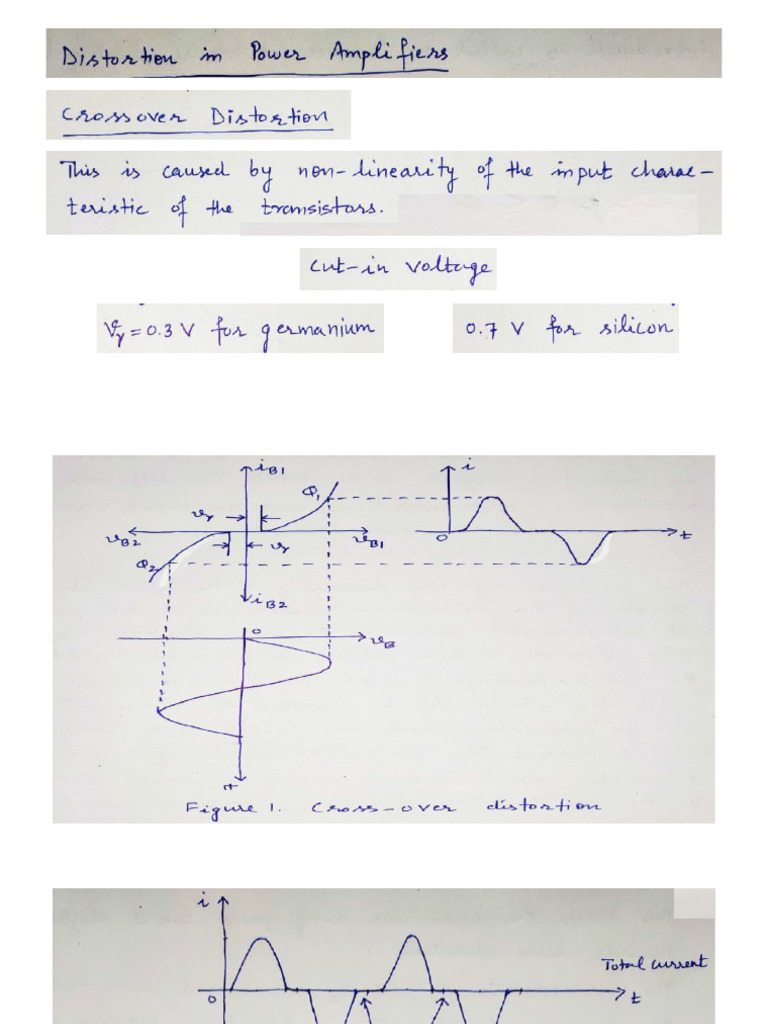 Distortion in Power Amplifiers
Crossover Distortion
This is caused by non-linearity of the input charac-
teristic of the transistors.
Cut-in voltage
Vγ = 0.3 V for germanium
0.7 V for silicon
iB1
i
Q1
vγ
vB2
vB1
0
t
Q2
vγ
iB2
0
vB
t
Figure 1. Cross-over distortion
i
Total current
0
t